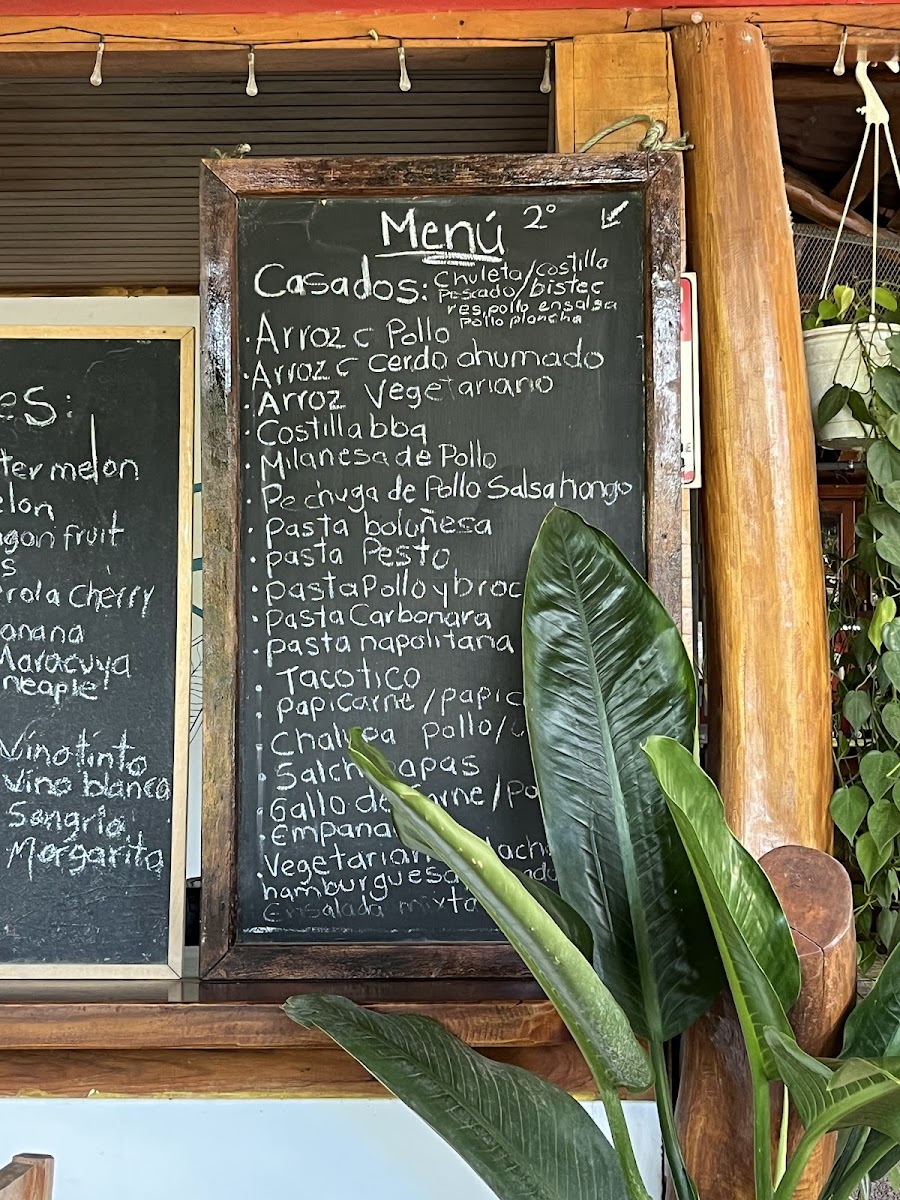 es:
termelon
elon
agon fruit
s
rola Cherry
anana
Maracuya
neaple
Vino tinto
Vino blanco
Sangria
Margarita
Menú 2°
Casados: Chuleta/costilla
Pescado/bistec
res, pollo ensalsa
Pollo plancha
· Arroz c Pollo
· Arroz c cerdo ahumado
· Arroz Vegetariano
· Costilla bbq
· Milanesa de Pollo
· Pechuga de Pollo Salsa hongo
· Pasta boluñesa
· pasta Pesto
· pasta Pollo y broc
· pasta Carbonara
· pasta napolitana
Tacotico
· Papicarne/papic
Chalupa pollo/
· Salchipapas
· Gallo de carne/Po
· Empana
Vegetarian
· hamburguesa
Ensalada mixta